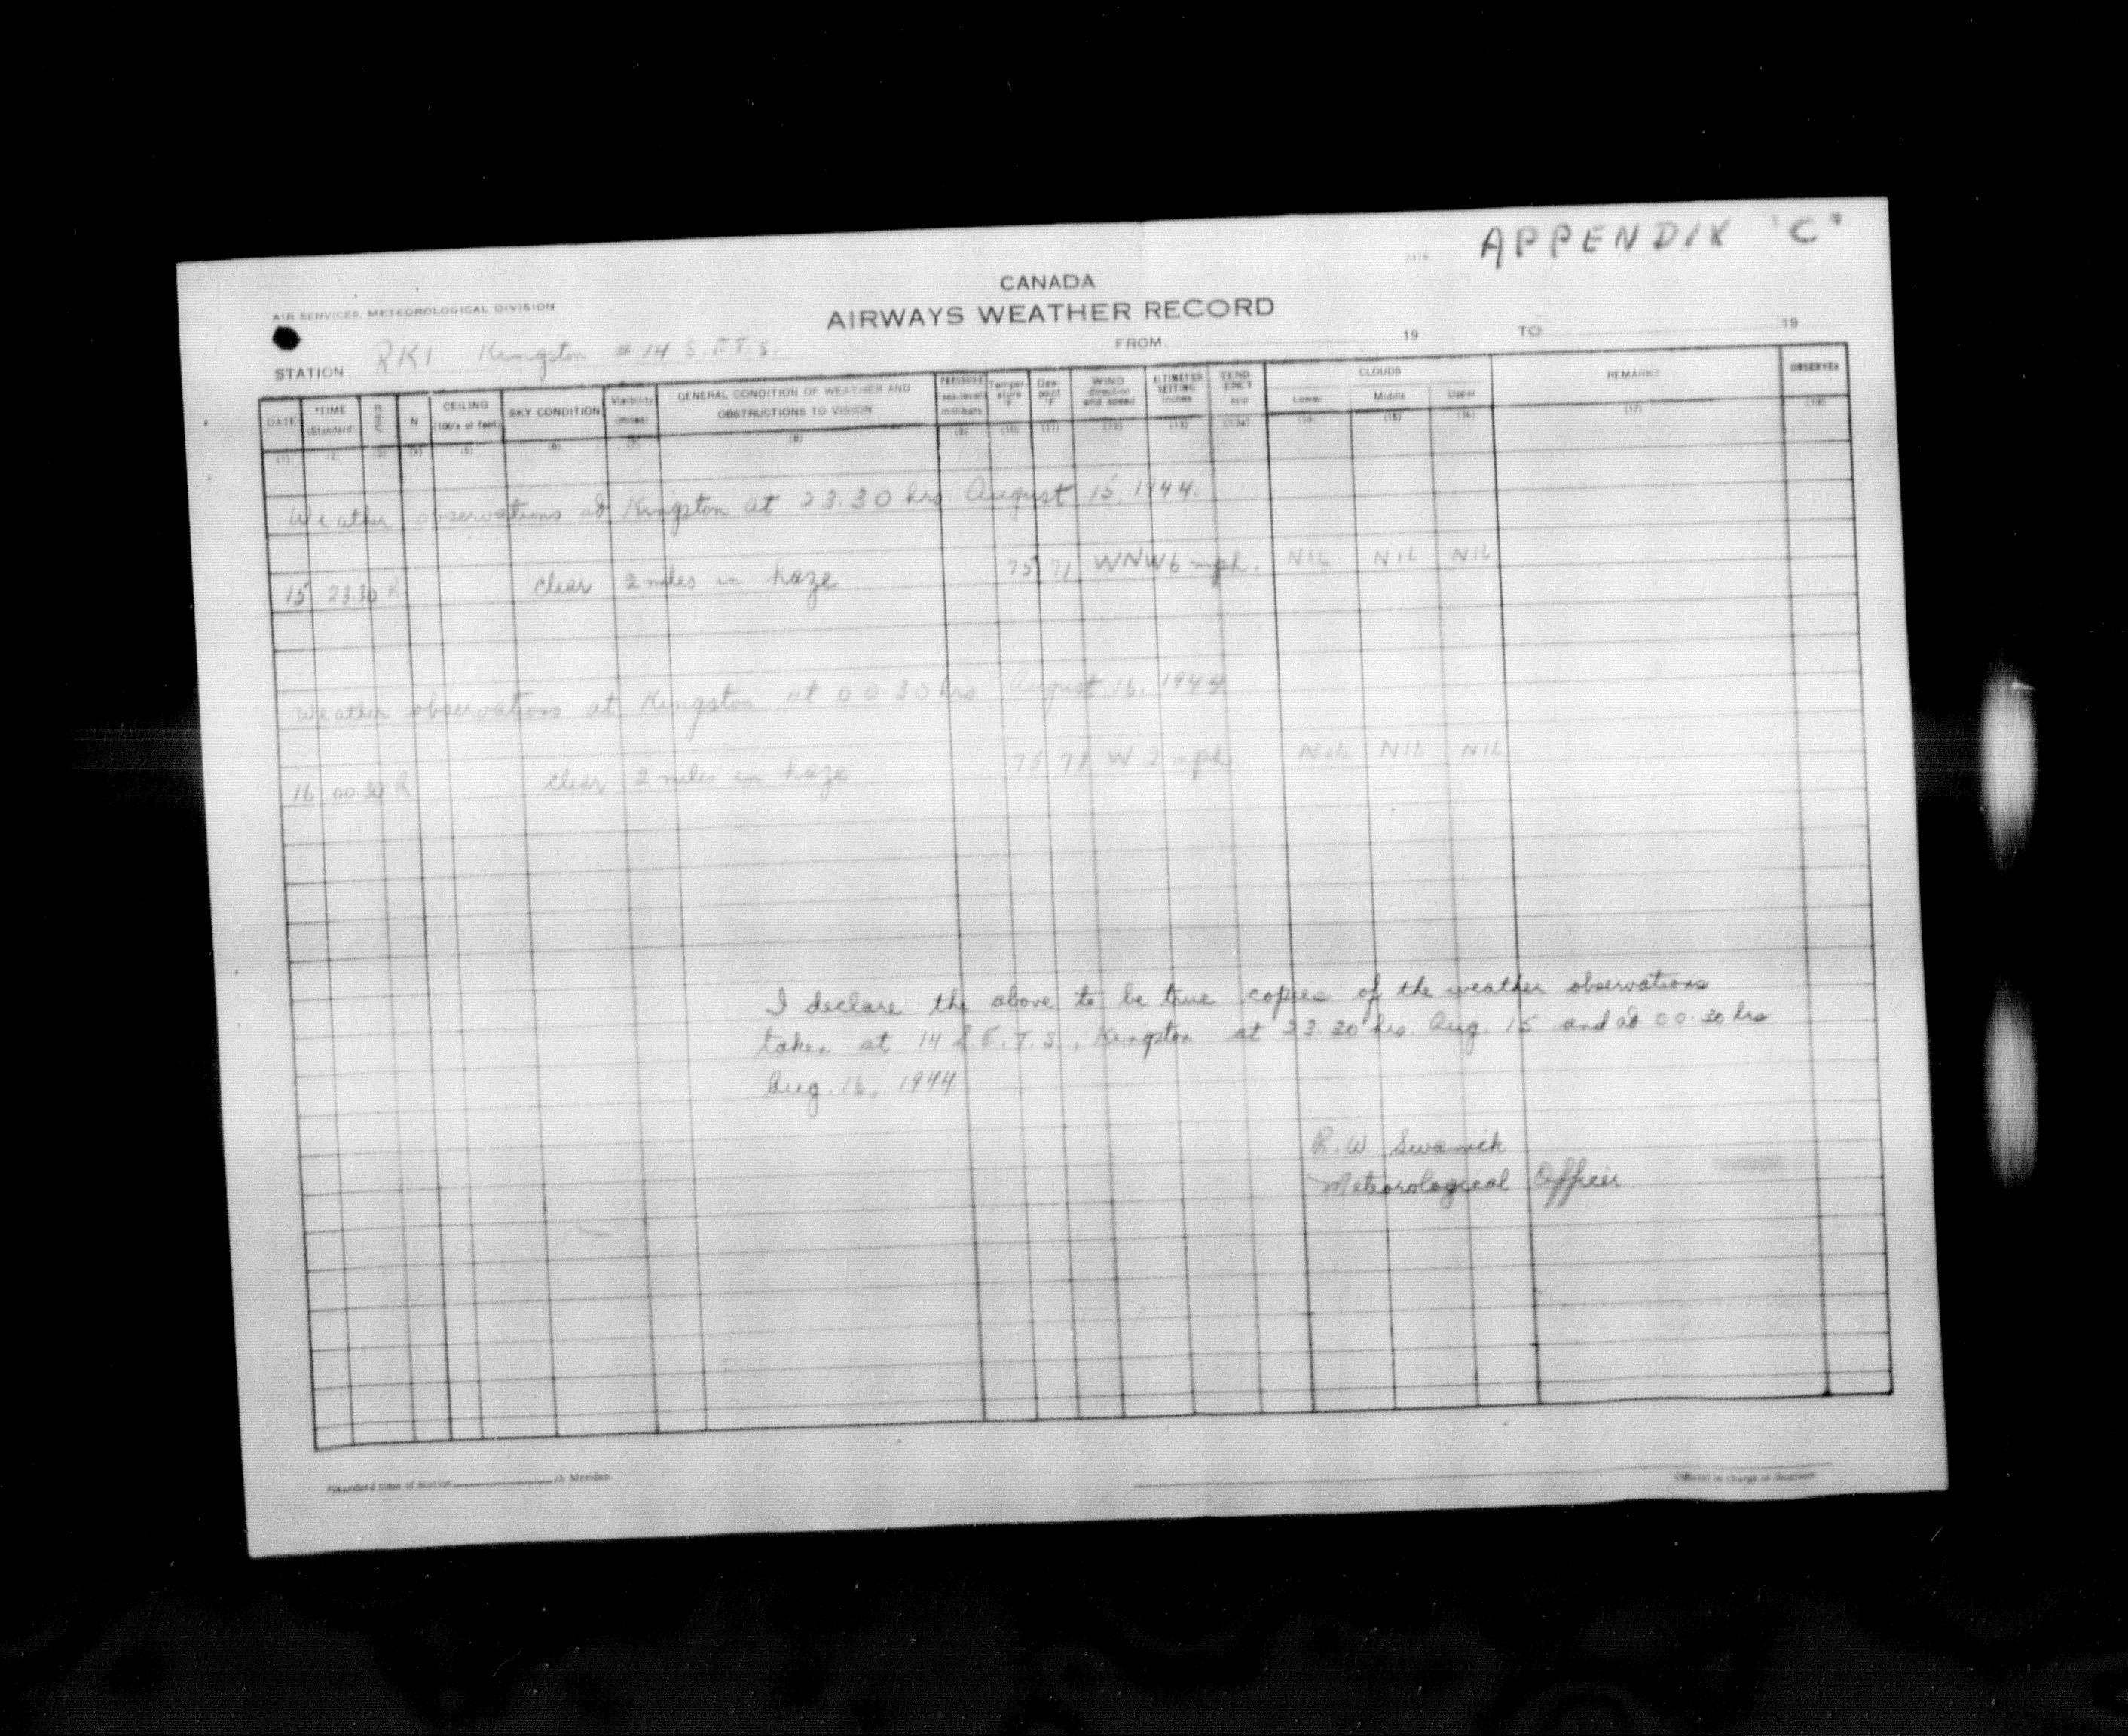 APPENDIX "C"
CANADA
AIR SERVICES, METEOROLOGICAL DIVISION
AIRWAYS WEATHER RECORD
FROM 19 TO 19
STATION RKI Kingston # 14 S.F.T.S.
DATE *TIME (Standard) R S C N CEILING (100's of feet) SKY CONDITION Visibility (miles) GENERAL CONDITION OF WEATHER AND OBSTRUCTIONS TO VISION PRESSURE sea-level millibars Temperature °F Dew-point °F WIND direction and speed ALTIMETER SETTING inches TENDENCY app CLOUDS Lower Middle Upper REMARKS OBSERVER
(1) (2) (3) (4) (5) (6) (7) (8) (9) (10) (11) (12) (13) (13a) (14) (15) (16) (17) (18)
Weather observations at Kingston at 23.30 hrs August 15, 1944.
15 23.30 R clear 2 miles in haze 75 71 WNW 6 mph. NIL NIL NIL
Weather observations at Kingston at 00.30 hrs August 16, 1944
16 00.30 R clear 2 miles in haze 75 71 W 2 mph NIL NIL NIL
I declare the above to be true copies of the weather observations
taken at 14 S.F.T.S., Kingston at 23.30 hrs. Aug. 15 and at 00.30 hrs
Aug. 16, 1944.
R. W. Swanick
Meteorological Officer
*Standard time of station th Meridan.
Official in charge of Station